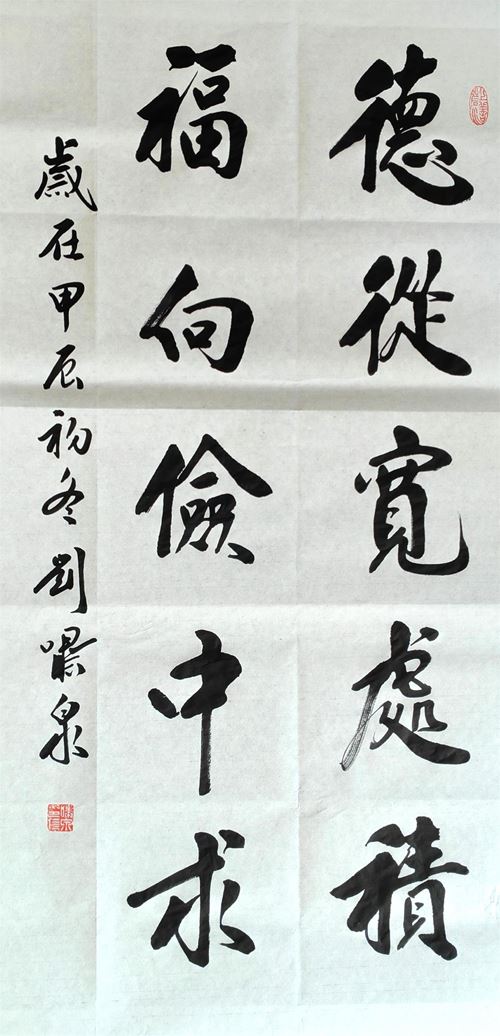 德從寬處積
福向儉中求
歲在甲辰初冬劉㬢泉